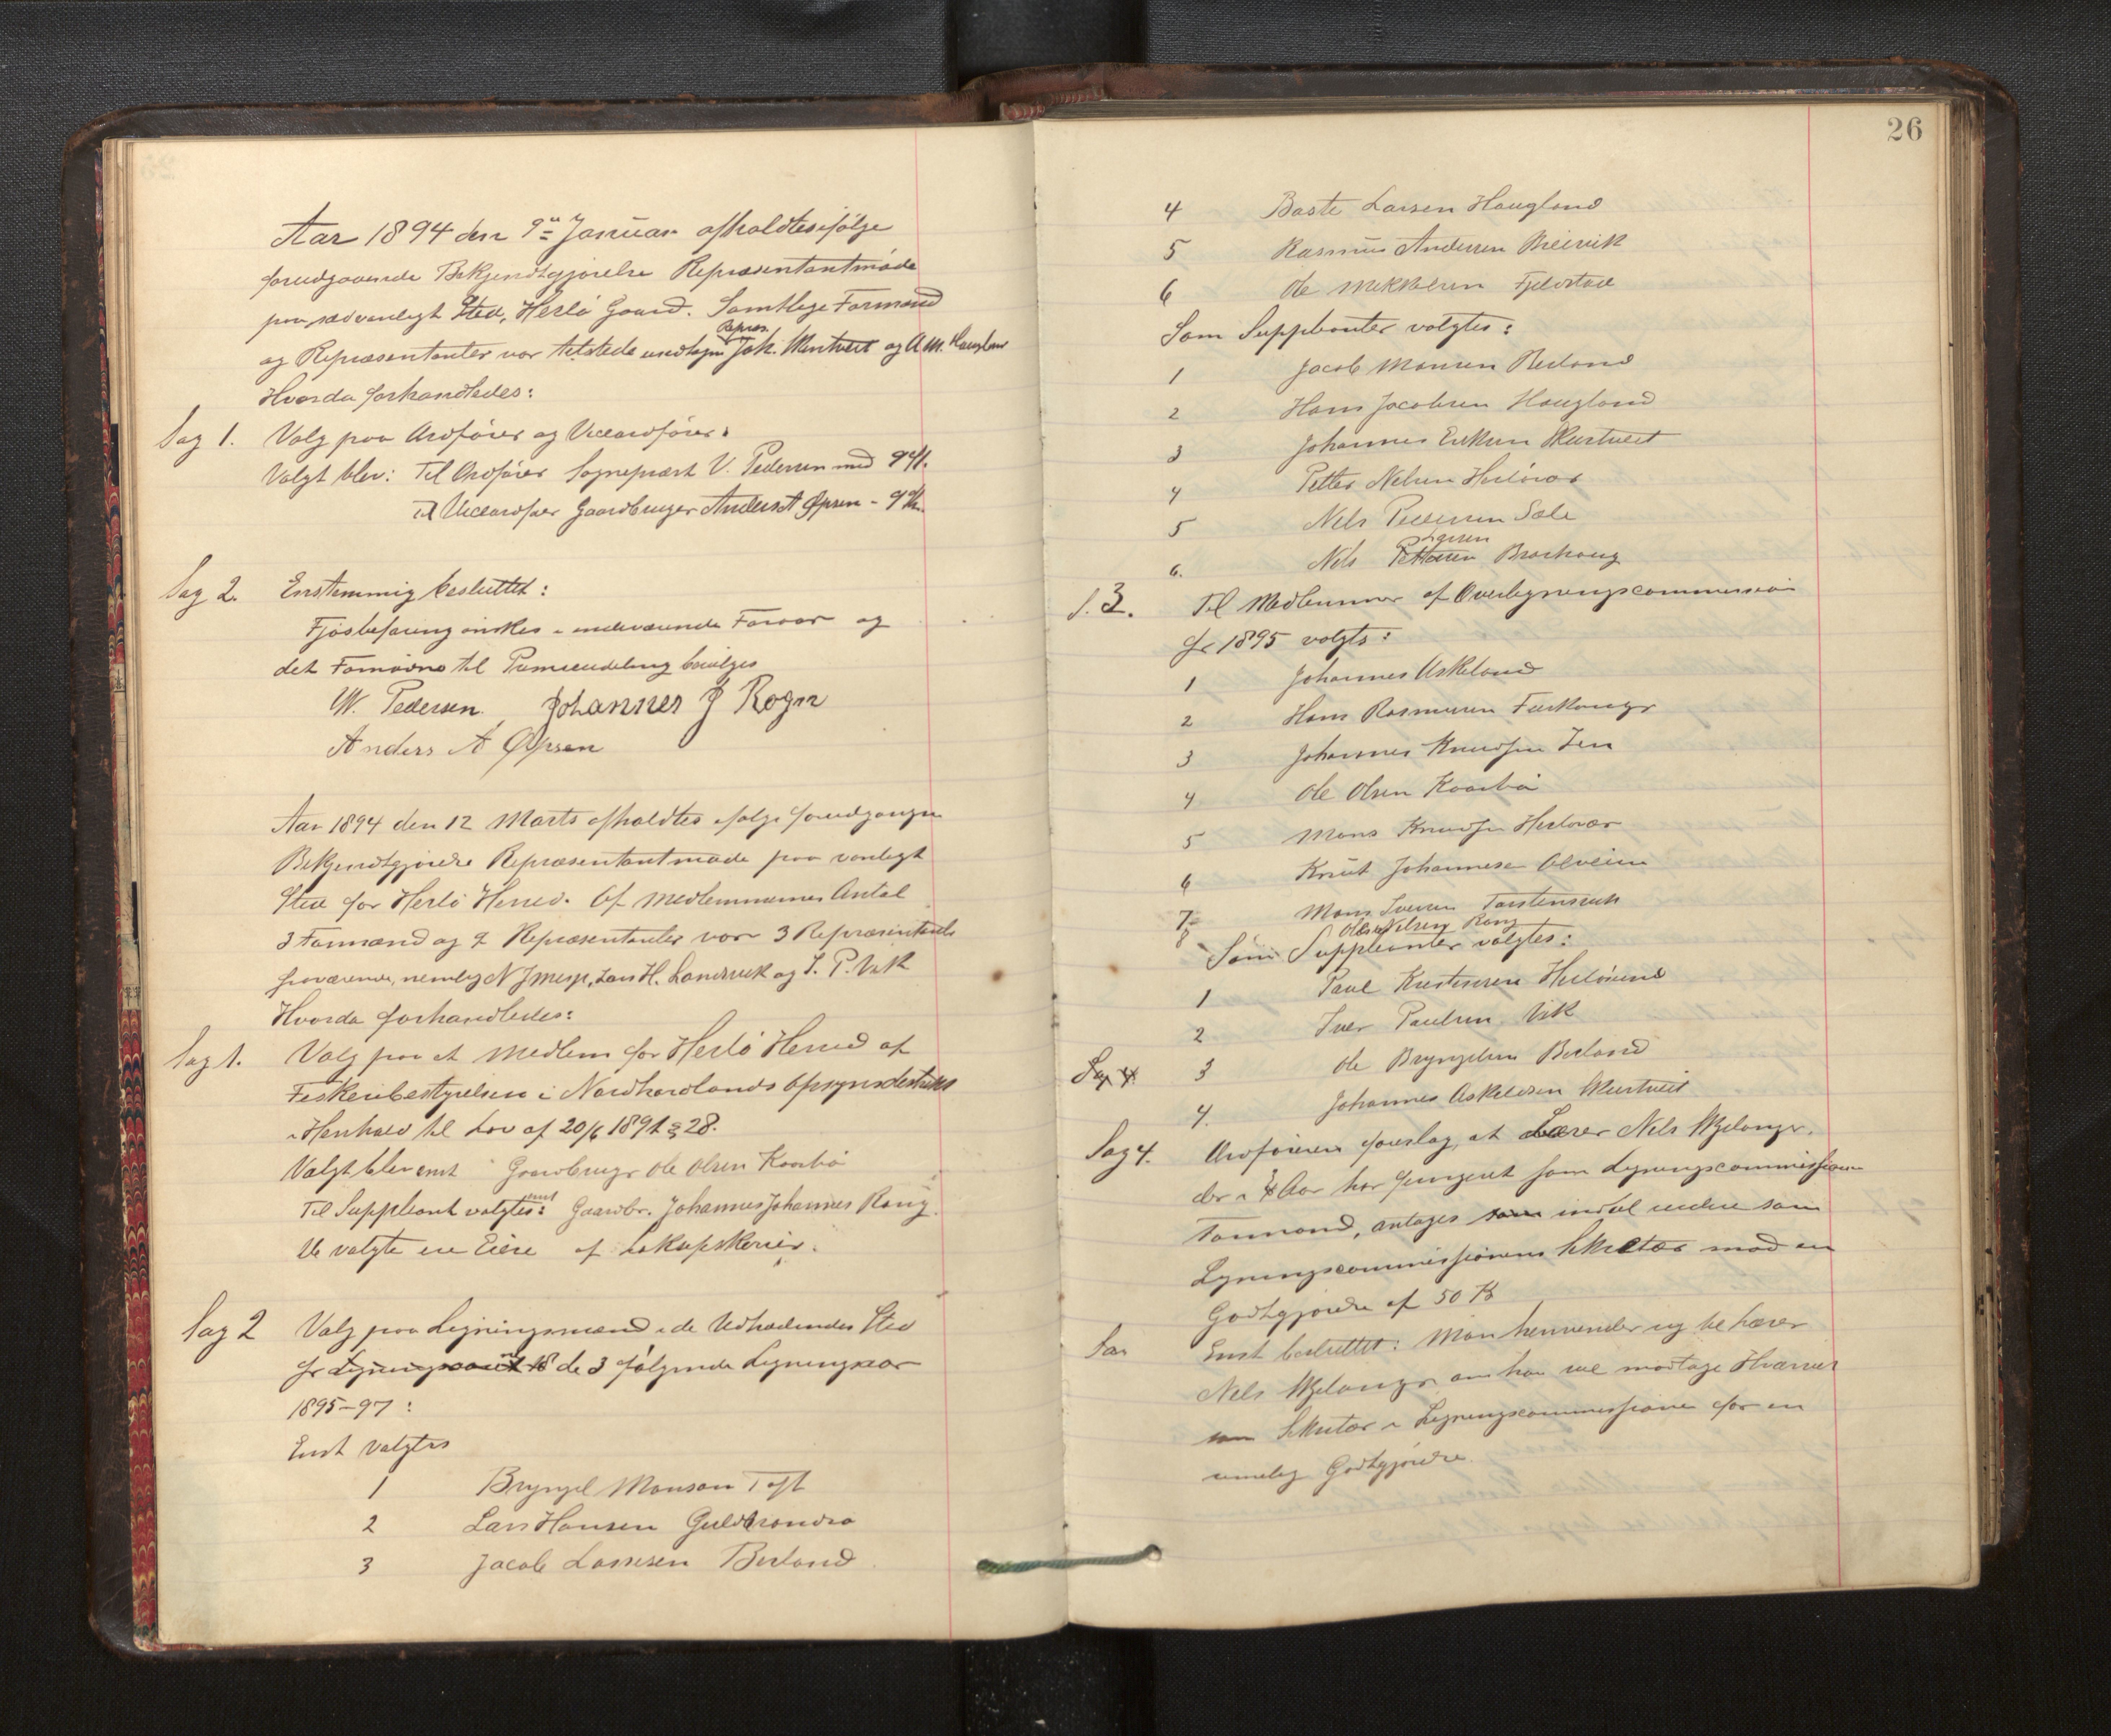 Aar 1894 den 9de Januar afholdtes ifølge
forudgaaende Bekjendtgjørelse Repræsentantmøde
paa sædvanligt Sted, Herlø Gaard. Samtlige Formænd
og Repræsentanter var tilstede undtagen Repræs. Joh. Mentveit og A. M. Haugland
Hvorda forhandledes:
Sag 1. Valg paa Ordfører og Viceordfører.
Valgt blev: Til Ordfører Sogneprest V. Pedersen med 9 St.
Til Viceordfører Gaardbruger Anders A Øpsen - 9 St.
Sag 2. Enstemmig besluttet:
Fjøsbefaring ønskes i indeværende Foraar og
det Fornødne til Præmieuddeling bevilges
W. Pedersen. Johannes J Rogn
Anders A Øpsen
Aar 1894 den 12 Marts afholdtes ifølge forudgangen
Bekjendtgjørelse Repræsentantmøde paa vanligt
Sted for Herlø Herred. Af Medlemmernes Antal
3 Formænd og 9 Repræsentanter var 3 Repræsentanter
fraværende, nemlig N Jmesp, Lars H. Landsvik og I. P. Vik
Hvorda forhandledes:
Sag 1. Valg paa et Medlem for Herlø Herred af
Fiskeribestyrelsen i Nordhordlands Opsynsdistrikt
i Henhold til Lov af 20/6 1891 § 28.
Valgt blev enst Gaardbruger Ole Olsen Kaarbø
Til Suppleant valgtes enst: Gaardbr. Johannes Johannes Rong.
De valgte er Eiere af Redskaber.
Sag 2 Valg paa Ligningsmænd i de Udtrædendes Sted
for Ligningsaaret 18 de 3 følgende Ligningsaar
1895-97:
Enst valgtes
1 Brynjel Monsen Toft
2 Lars Hansen Guldbrandsø
3 Jacob Larsesen Berland
26
4 Baste Larsen Haugland
5 Rasmus Andersen Breivik
6 Ole Mikkelsen Fjeldstad
Som Suppleanter valgtes:
1 Jacob Monsen Berland
2 Hans Jacobsen Haugland
3 Johannes Eriksen Skurtveit
4 Petter Nelsen Herløvær
5 Nels Pedersen Sæle
6. Nels Pettersen Larsen Brashaug
S. 3. Til Medlemmer af Overligningscommission
for 1895 valgtes:
1 Johannes Askeland
2 Hans Rasmussen Turkanger
3 Johannes Knudsen Zen
4 Ole Olsen Kaarbø
5 Mons Knudsen Herløvær
6 Knut Johannesen Alveim
7 Mons Iversen Torstensvik
8 Ole Nelsen Rong
Som Suppleanter valgtes:
1 Paul Kristensen Herløsund
2 Iver Paulsen Vik
Sag 4 3 Ole Brynjelsen Berland
4. Johannes Askelesen Skurtveit
Sag 4. Ordføreren foreslog, at Lærer Nels Mjelanger.
der i 3 Aar har fungeret som Ligningscommissionens
Formand, antages som indtil videre som
Ligningscommissionens Sekretær mod en
Godtgjørelse af 50 Kr
Enst besluttet: Man henvender sig til Lærer
Nels Mjelanger om han vil modtage Hvervet
som Sekretær i Ligningscommissionen for en
rimelig Godtgjørelse.